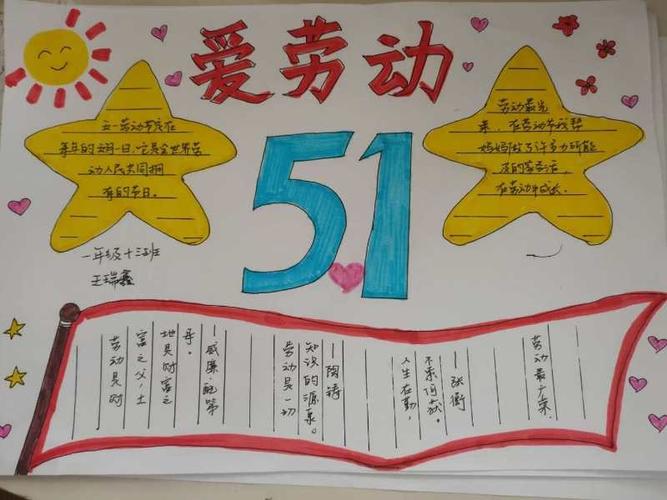 爱劳动
五一劳动节定在
每年的五月一日,它是全世界劳
动人民共同拥
有的节日。
劳动最光
荣,在劳动节我帮
妈妈做了许多力所能
及的家务活,
在劳动中成长.
51
一年级十三班
王瑞鑫
劳动是财
富之父,土
地是财富之
母。
—威廉·配第
劳动是一切
知识的源泉。
—陶铸
人生在勤,
不索何获。
—张衡
劳动最光荣.